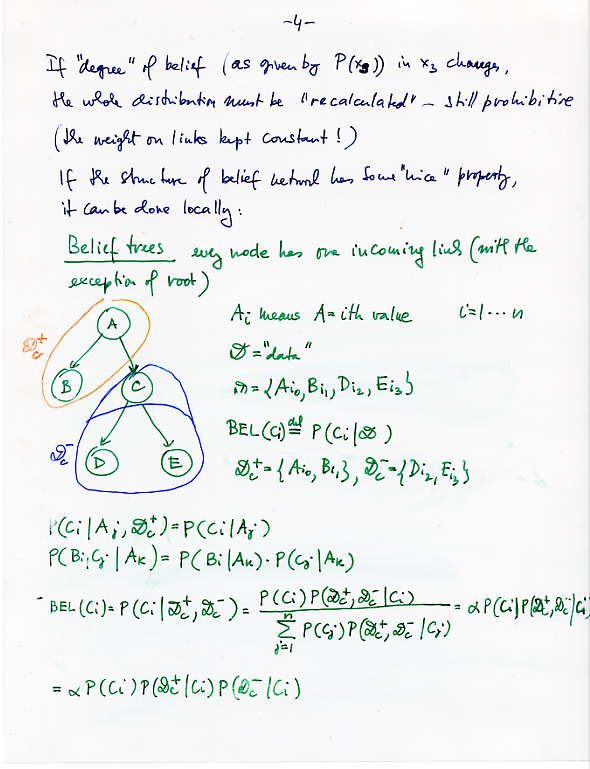 -4-
If "degree" of belief (as given by P(x₃)) in x₃ changes,
the whole distribution must be "recalculated" – still prohibitive
(the weight on links kept constant!)
If the structure of belief network has some "nice" property,
it can be done locally:
Belief trees every node has one incoming link (with the
exception of root)
A
B
C
D
E
𝒟c⁺
𝒟c⁻
Ai means A = ith value i=1 ⋯ n
𝒟 = "data"
= {Ai₀, Bi₁, Di₂, Ei₃}
BEL(Ci) def≡ P(Ci|𝒟)
𝒟c⁺ = {Ai₀, Bi₁}, 𝒟c⁻ = {Di₂, Ei₃}
P(Ci|Aj, 𝒟c⁺) = P(Ci|Aj)
P(Bi, Cj|Ak) = P(Bi|Ak) · P(Cj|Ak)
BEL(Ci) = P(Ci|𝒟c⁺, 𝒟c⁻) = P(Ci) P(𝒟c⁺, 𝒟c⁻|Ci) / n∑j=1 P(Cj) P(𝒟c⁺, 𝒟c⁻|Cj) = αP(Ci)P(𝒟c⁺, 𝒟c⁻|Ci)
= αP(Ci) P(𝒟c⁺|Ci) P(𝒟c⁻|Ci)